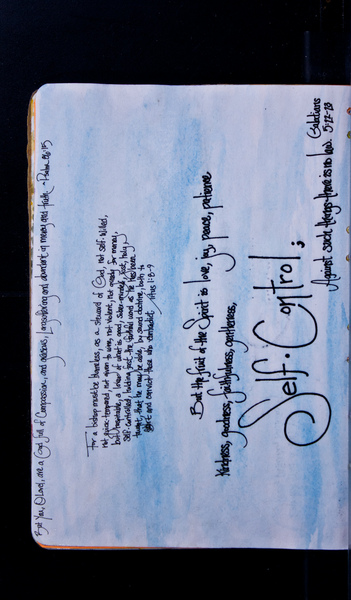 But You, O Lord, are a God full of Compassion, and gracious, Longsuffering and abundant in mercy and truth. -Psalm 86:15
For a bishop must be blameless, as a steward of God, not self willed,
not quick-tempered, not given to wine, not violent, not greedy for money,
but hospitable, a lover of what is good, sober-minded, just, holy,
self-controlled, holding fast the faithful word as he has been
taught, that he may be able, by sound doctrine, both to
and convict those who contradict. Titus 1:8-9
But the fruit of the Spirit is love, joy, peace, patience
kindness, goodness, faithfulness, gentleness,
Self-Control;
Against such things there is no law. Galatians
5:22-23